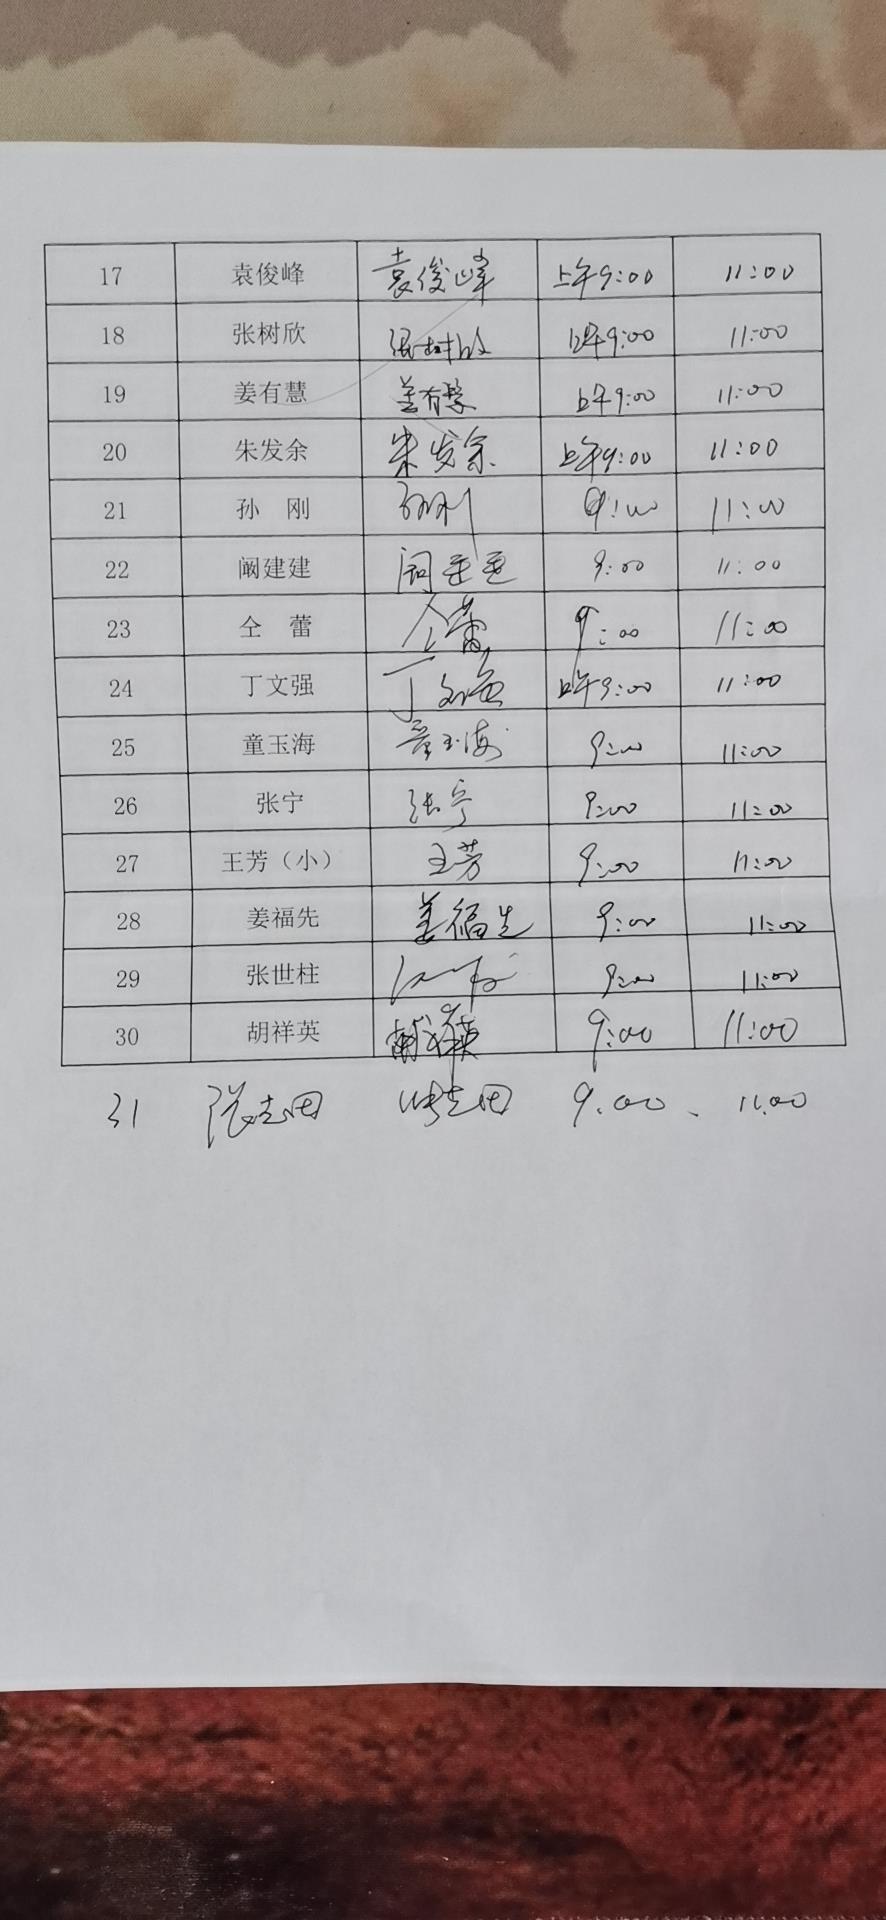 17 袁俊峰 袁俊峰 上午9:00 11:00
18 张树欣 张树欣 上午9:00 11:00
19 姜有慧 姜有慧 上午9:00 11:00
20 朱发余 朱发余 上午9:00 11:00
21 孙 刚 孙刚 9:00 11:00
22 阚建建 阚建建 9:00 11:00
23 仝 蕾 仝蕾 9:00 11:00
24 丁文强 丁文强 上午9:00 11:00
25 童玉海 童玉海 9:00 11:00
26 张宁 张宁 9:00 11:00
27 王芳（小） 王芳 9:00 11:00
28 姜福先 姜福先 9:00 11:00
29 张世柱 9:00 11:00
30 胡祥英 胡祥英 9:00 11:00
31 张志田 张志田 9.00、11.00